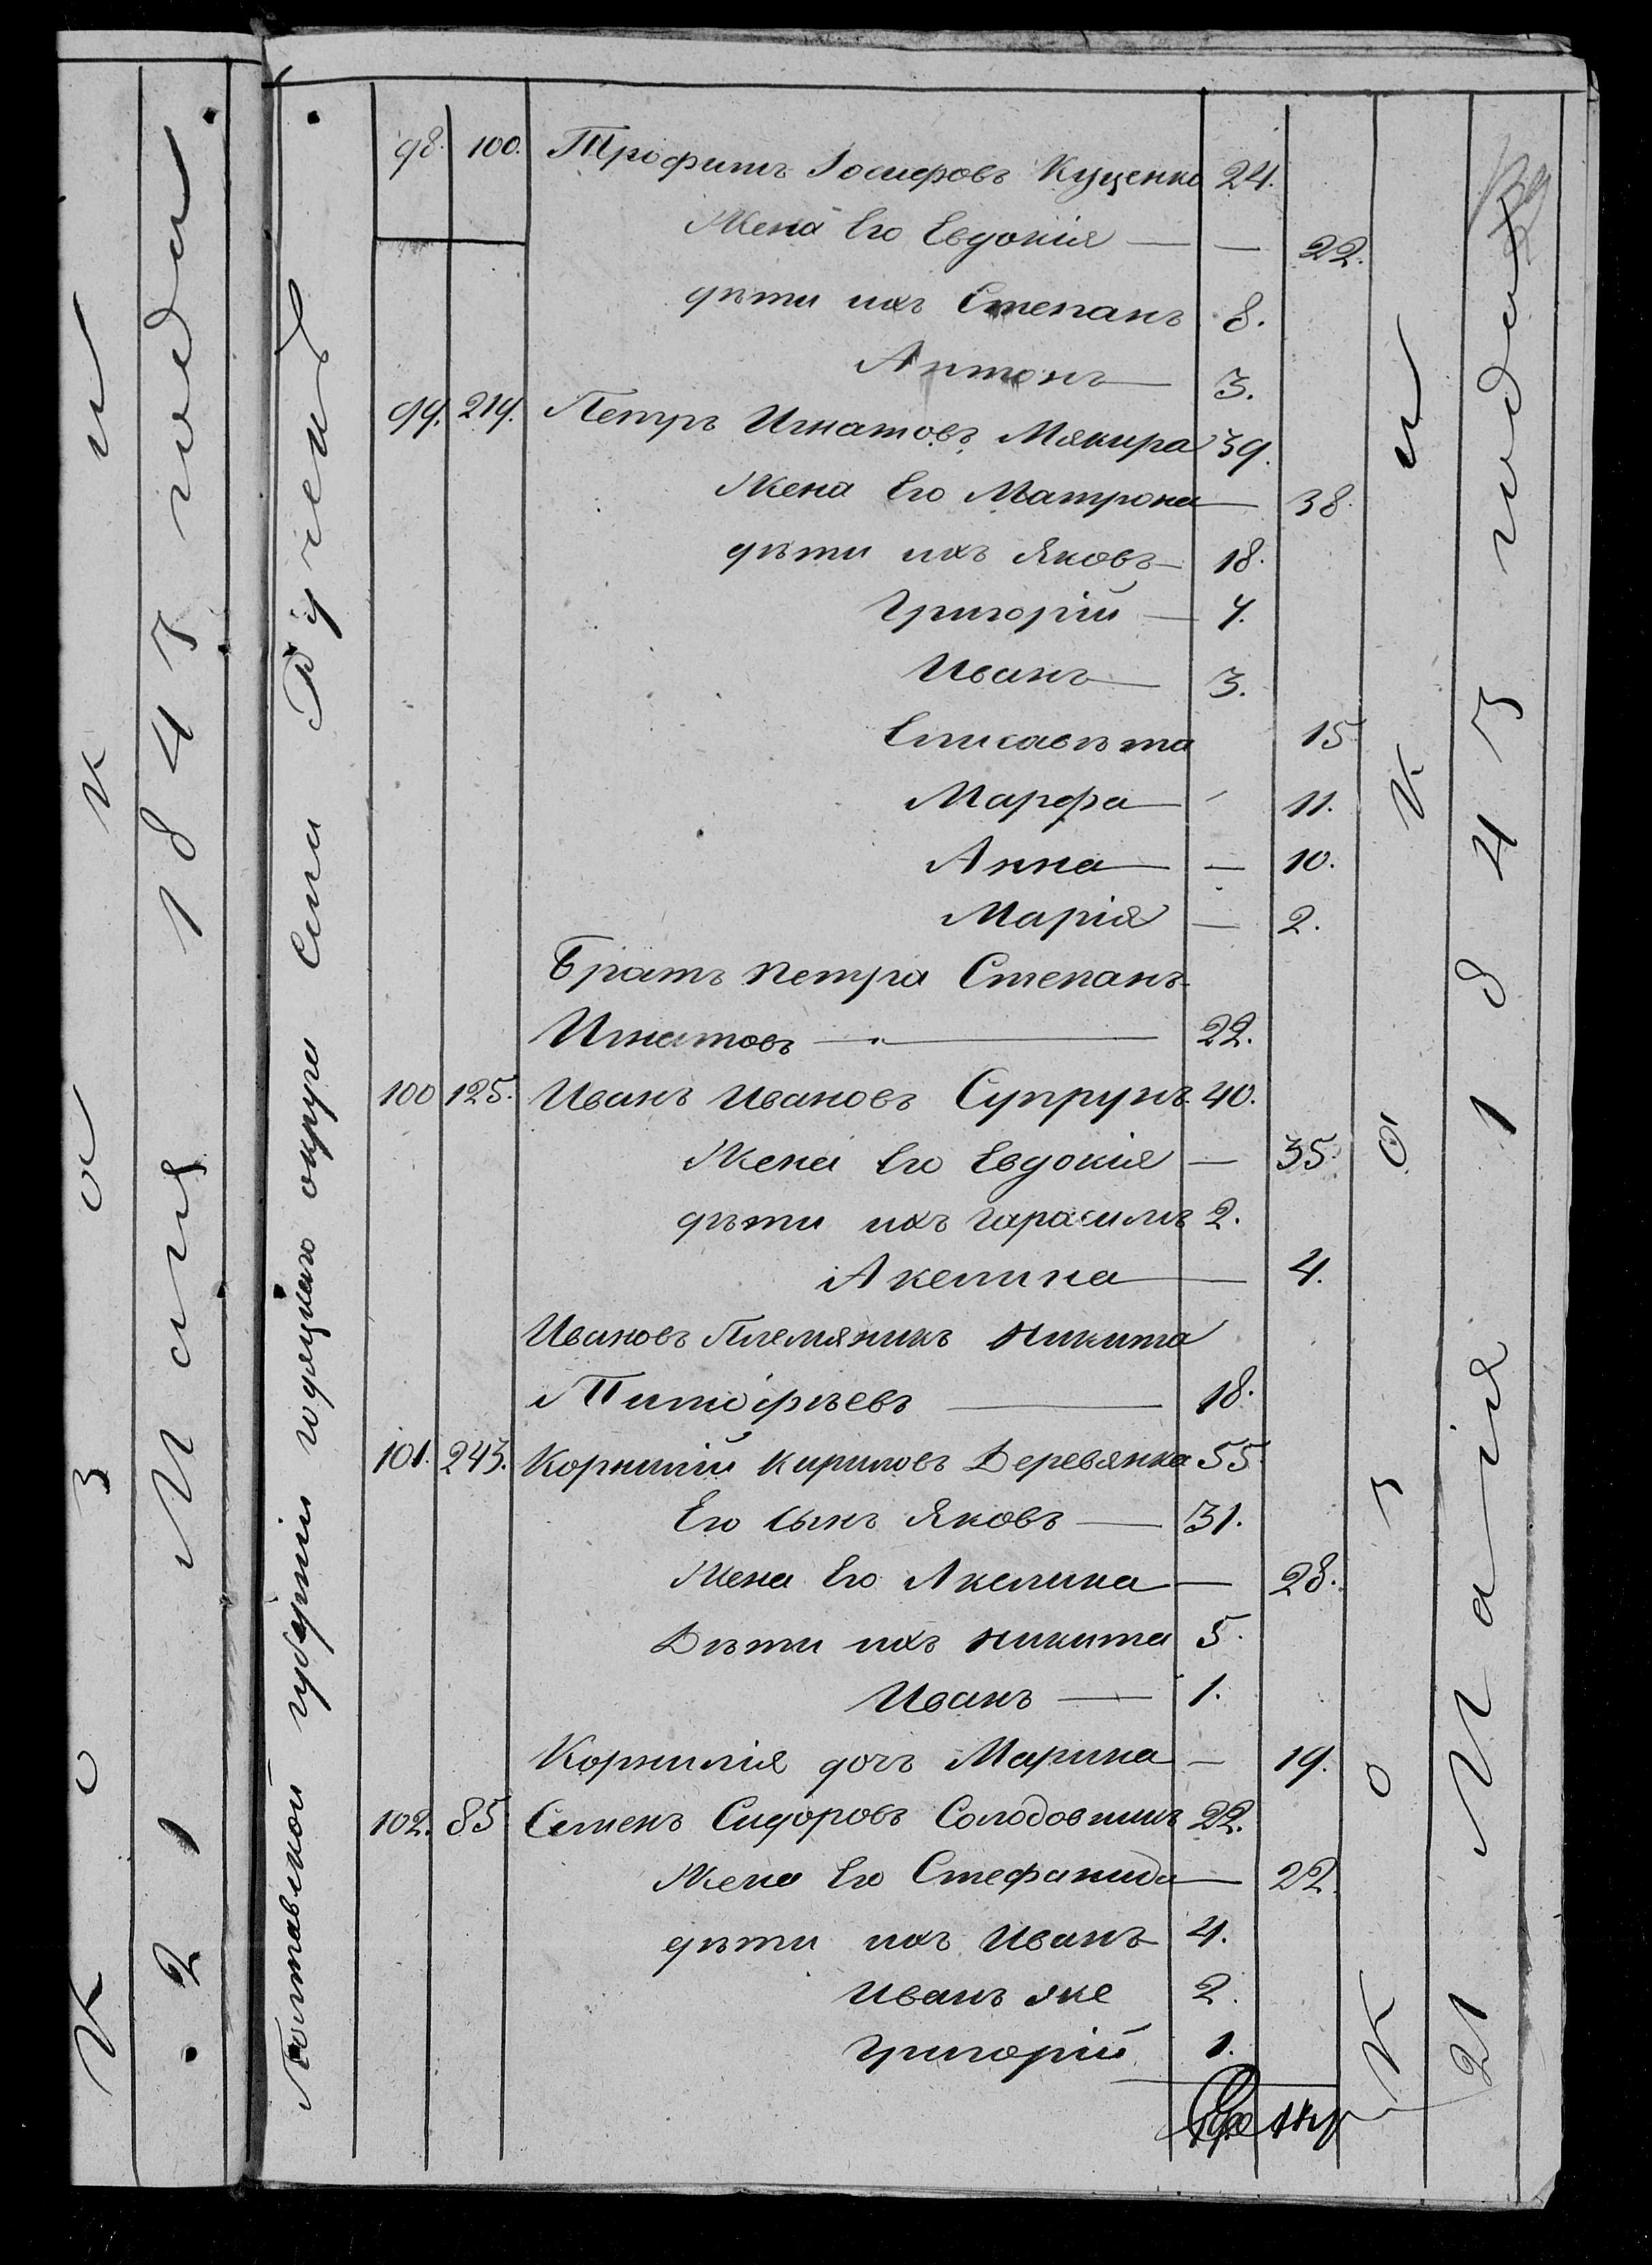 К о з а к и
21 Мая 1847 года
Полтавской губерніи годяцкаго округи Села Ручекъ
98. 100. Трофимъ Іосифовъ Куценко 24.
Жена Его Евдокія — — 22.
дѣти ихъ Степанъ 8.
Антонъ — 3.
99. 219. Петръ Игнатовъ Мякира 39.
Жена Его Матрона — 38.
дѣти ихъ Яковъ — 18.
Григорій — 7.
Иванъ — 3.
Елисавѣта 15
Марфа — 11.
Анна — — 10.
Марія — 2.
Братъ Петра Степанъ
Игнатовъ — 22.
100 125. Иванъ Ивановъ Супрунъ 40.
Жена Его Евдокія — 35.
дѣти ихъ Гарасимъ 2.
Акелина — 4.
Ивановъ Племяникъ Никита
Тимофѣевъ — 18.
101. 243. Корнилій Кириловъ Деревянка 55
Его сынъ Яковъ — 31.
Жена Его Акелина — 28.
Дѣти ихъ Никита 5.
Иванъ — 1.
Корнилія дочь Марина — 19.
102. 85 Семенъ Сидоровъ Солодовникъ 22.
Жена Его Стефанида — 22.
дѣти ихъ Иванъ 4.
Иванъ же 2.
Григорій 1.
К о з а к и
21 Маія 1847 года